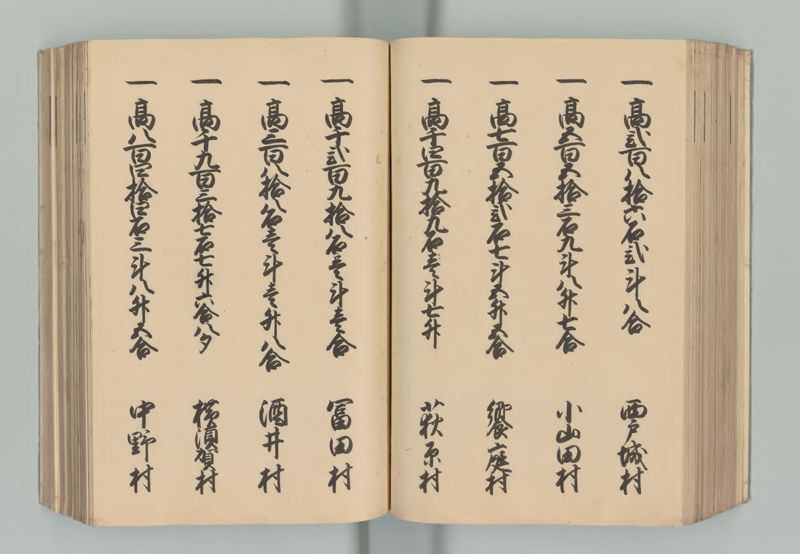 一高弐百八拾六石弐斗八合 西戸城村
一高五百五拾三石九斗八升七合 小山田村
一高七百五拾弐石七斗五升五合 饗庭村
一高千四百九拾九石壱斗七升 荻原村
一高千弐百九拾八石壱斗壱合 冨田村
一高三百八拾八石壱斗壱升八合 酒井村
一高千九百三拾七石七升六合八夕 横須賀村
一高八百四拾四石三斗八升五合 中野村